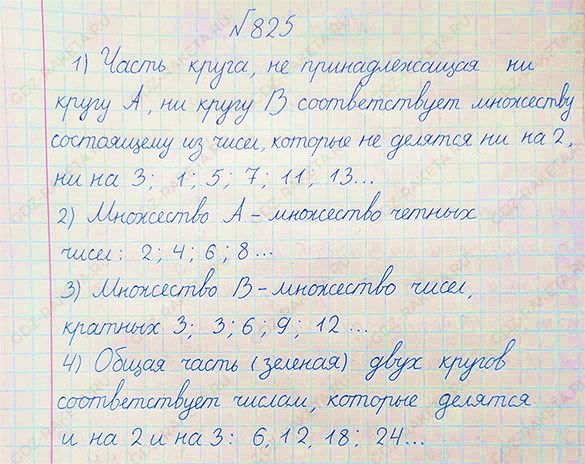 №825
1) Часть круга, не принадлежащая ни
кругу А, ни кругу В соответствует множеству
состоящему из чисел, которые не делятся ни на 2,
ни на 3; 1; 5; 7; 11, 13...
2) Множество А - множество четных
чисел: 2; 4; 6; 8...
3) Множество В - множество чисел,
кратных 3; 3; 6; 9; 12...
4) Общая часть (зеленая) двух кругов
соответствует числам, которые делятся
и на 2 и на 3: 6, 12, 18; 24...
GDZ-RAKETA.RU